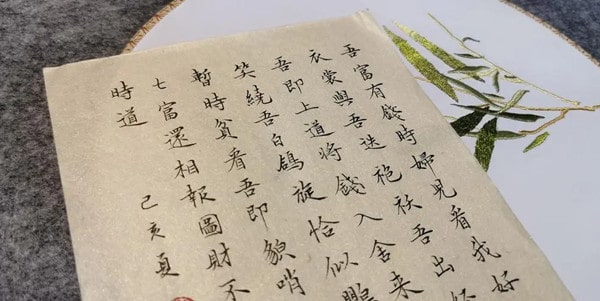 吾富有錢時婦兒看我好
衣裳與吾迭袍袄吾出
吾即上道將錢入舍来
笑繞吾白鴿旋恰似
暫時貧看吾即貌哨
七富還相報圖財不
時道
己亥夏